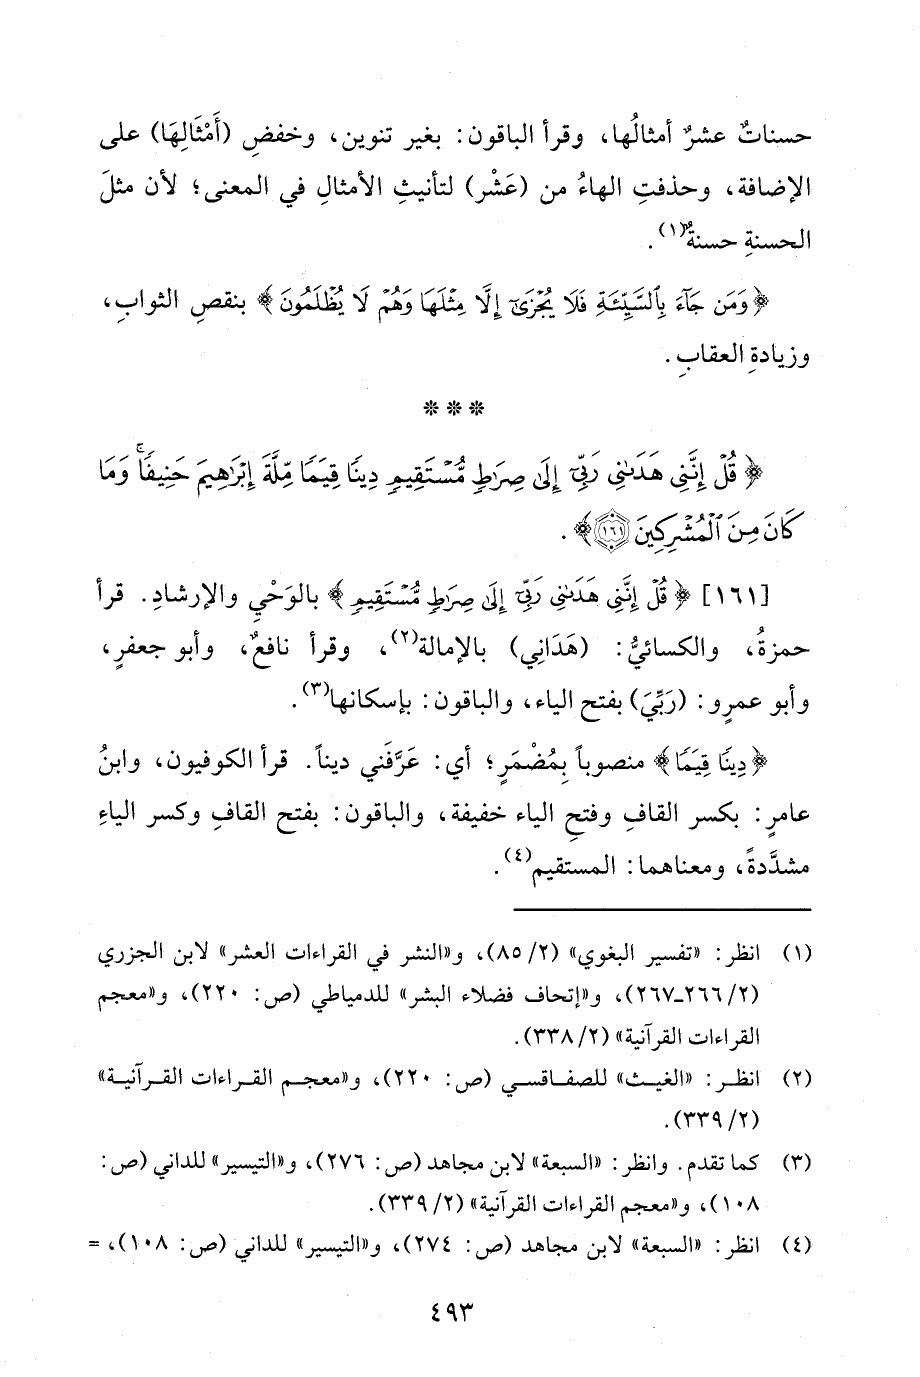 حسناتٌ عشرٌ أمثالُها، وقرأ الباقون: بغير تنوين، وخفضِ (أَمْثَالِهَا) على
الإضافة، وحذفتِ الهاءُ من (عَشْر) لتأنيثِ الأمثالِ في المعنى؛ لأن مثلَ
الحسنةِ حسنةٌ(١).
﴿وَمَن جَآءَ بِٱلسَّيِّئَةِ فَلَا يُجْزَىٰٓ إِلَّا مِثْلَهَا وَهُمْ لَا يُظْلَمُونَ﴾ بنقصِ الثوابِ،
وزيادةِ العقابِ.
* * *
﴿قُلْ إِنَّنِى هَدَىٰنِى رَبِّىٓ إِلَىٰ صِرَٰطٍ مُّسْتَقِيمٍ دِينًا قِيَمًا مِّلَّةَ إِبْرَٰهِيمَ حَنِيفًا ۚ وَمَا
كَانَ مِنَ ٱلْمُشْرِكِينَ ١٦١﴾.
[١٦١] ﴿قُلْ إِنَّنِى هَدَىٰنِى رَبِّىٓ إِلَىٰ صِرَٰطٍ مُّسْتَقِيمٍ﴾ بالوَحْيِ والإرشادِ. قرأ
حمزةُ، والكسائيُّ: (هَدَانِي) بالإمالة(٢)، وقرأ نافعٌ، وأبو جعفرٍ،
وأبو عمرٍو: (رَبِّيَ) بفتح الياء، والباقون: بإسكانها(٣).
﴿دِينًا قِيَمًا﴾ منصوباً بِمُضْمَرٍ؛ أي: عَرَّفَني ديناً. قرأ الكوفيون، وابنُ
عامرٍ: بكسر القافِ وفتحِ الياء خفيفة، والباقون: بفتح القافِ وكسر الياءِ
مشدَّدةً، ومعناهما: المستقيم(٤).
(١) انظر: «تفسير البغوي» (٢/ ٨٥)، و«النشر في القراءات العشر» لابن الجزري
(٢/ ٢٦٦ـ٢٦٧)، و«إتحاف فضلاء البشر» للدمياطي (ص: ٢٢٠)، و«معجم
القراءات القرآنية» (٢/ ٣٣٨).
(٢) انظر: «الغيث» للصفاقسي (ص: ٢٢٠)، و«معجم القراءات القرآنية»
(٢/ ٣٣٩).
(٣) كما تقدم. وانظر: «السبعة» لابن مجاهد (ص: ٢٧٦)، و«التيسير» للداني (ص:
١٠٨)، و«معجم القراءات القرآنية» (٢/ ٣٣٩).
(٤) انظر: «السبعة» لابن مجاهد (ص: ٢٧٤)، و«التيسير» للداني (ص: ١٠٨)، =
٤٩٣